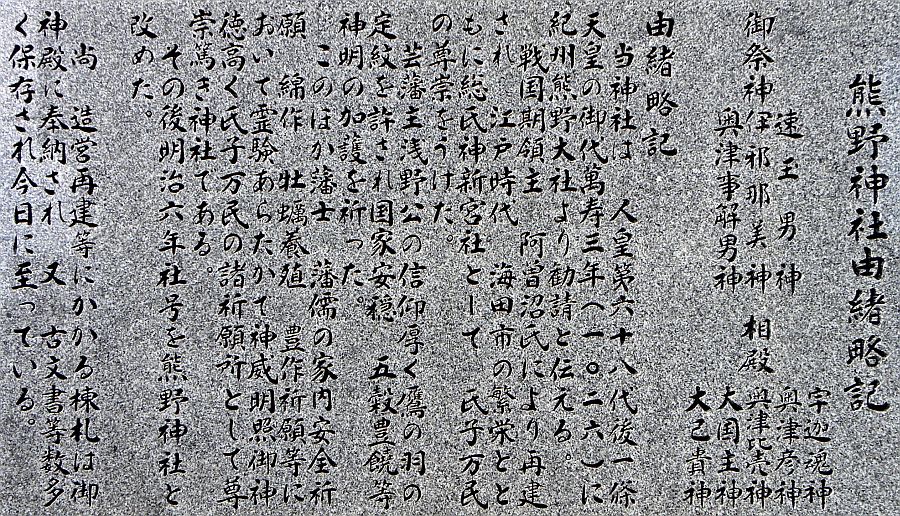 熊野神社由緒略記
御祭神 伊邪那美神 相殿
速玉男神
奥津事解男神
宇迦魂神
奥津彦神
奥津比売神
大国主神
大己貴神
由緒略記
当神社は 人皇第六十八代後一條
天皇の御代萬寿三年(一〇二六)に
紀州熊野大社より勧請と伝える。
戦国期領主 阿曽沼氏により再建
され 江戸時代 海田市の繁栄とと
もに総氏神新宮社として 氏子万民
の尊崇をうけた。
芸藩主浅野公の信仰厚く鷹の羽の
定紋を許され国家安穏 五穀豊饒等
神明の加護を祈った。
このほか藩士 藩儒の家内安全祈
願 綿作 牡蠣養殖 豊作祈願等に
おいて霊験あらたかで神威明照御神
徳高く氏子万民の諸祈願所として尊
崇篤き神社である。
その後明治六年社号を熊野神社と
改めた。
尚 造営再建等にかかる棟札は御
神殿に奉納され 又 古文書等数多
く保存され今日に至っている。